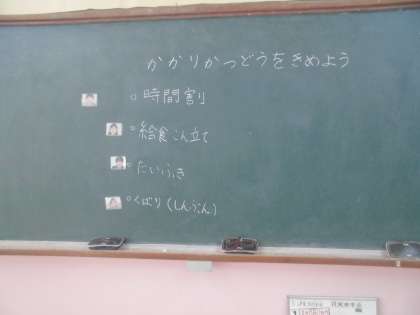 かかりかつどうをきめよう
○時間割
○給食こん立て
○だいふき
○くばり(しんぶん)